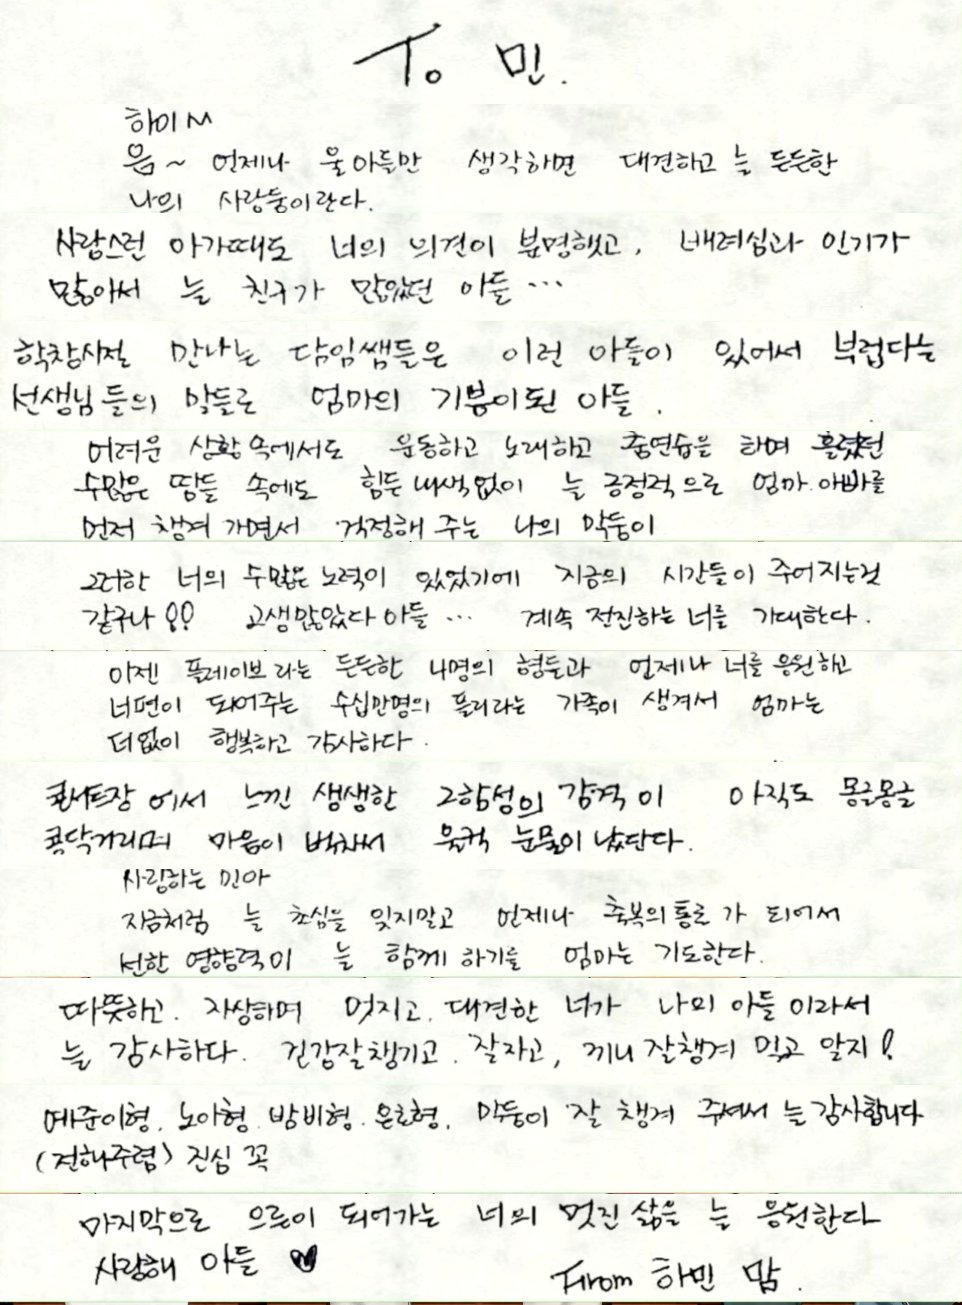 To 민.
하이 M
음~ 언제나 울아들만 생각하면 대견하고 늘 든든한
나의 사랑둥이란다.
사랑스런 아가때도 너의 의견이 분명했고, 배려심과 인기가
많아서 늘 친구가 많았던 아들...
학창시절 만나는 담임쌤들은 이런 아들이 있어서 부럽다는
선생님들의 말들로 엄마의 기쁨이된 아들.
어려운 상황속에서도 운동하고 노래하고 춤연습을 하며 흘렸던
수많은 땀들 속에도 힘든내색없이 늘 긍정적으로 엄마.아빠를
먼저 챙겨가면서 걱정해주는 나의 막둥이
그러한 너의 수많은 노력이 있었기에 지금의 시간들이 주어지는것
같구나!! 고생많았다 아들... 계속 전진하는 너를 기대한다.
이젠 플레이브라는 든든한 4명의 형들과 언제나 너를 응원하고
너편이 되어주는 수십만명의 플리라는 가족이 생겨서 엄마는
더없이 행복하고 감사하다.
콘서트장에서 느낀 생생한 그함성의 감격이 아직도 몽글몽글
콩닥거리며 마음이 벅차서 울컥 눈물이 났단다.
사랑하는 민아
지금처럼 늘 초심을 잊지말고 언제나 축복의통로가 되어서
선한 영향력이 늘 함께하기를 엄마는 기도한다.
따뜻하고. 자상하며 멋지고. 대견한 너가 나의 아들이라서
늘 감사하다. 건강잘챙기고. 잘자고, 끼니 잘챙겨 먹고 알지!
예준이형. 노아형. 밤비형. 은호형. 막둥이 잘 챙겨 주셔서 늘 감사합니다
(전해주렴) 진심 꼭
마지막으로 으른이 되어가는 너의 멋진 삶을 늘 응원한다
사랑해 아들 ♥
From 하민 맘.